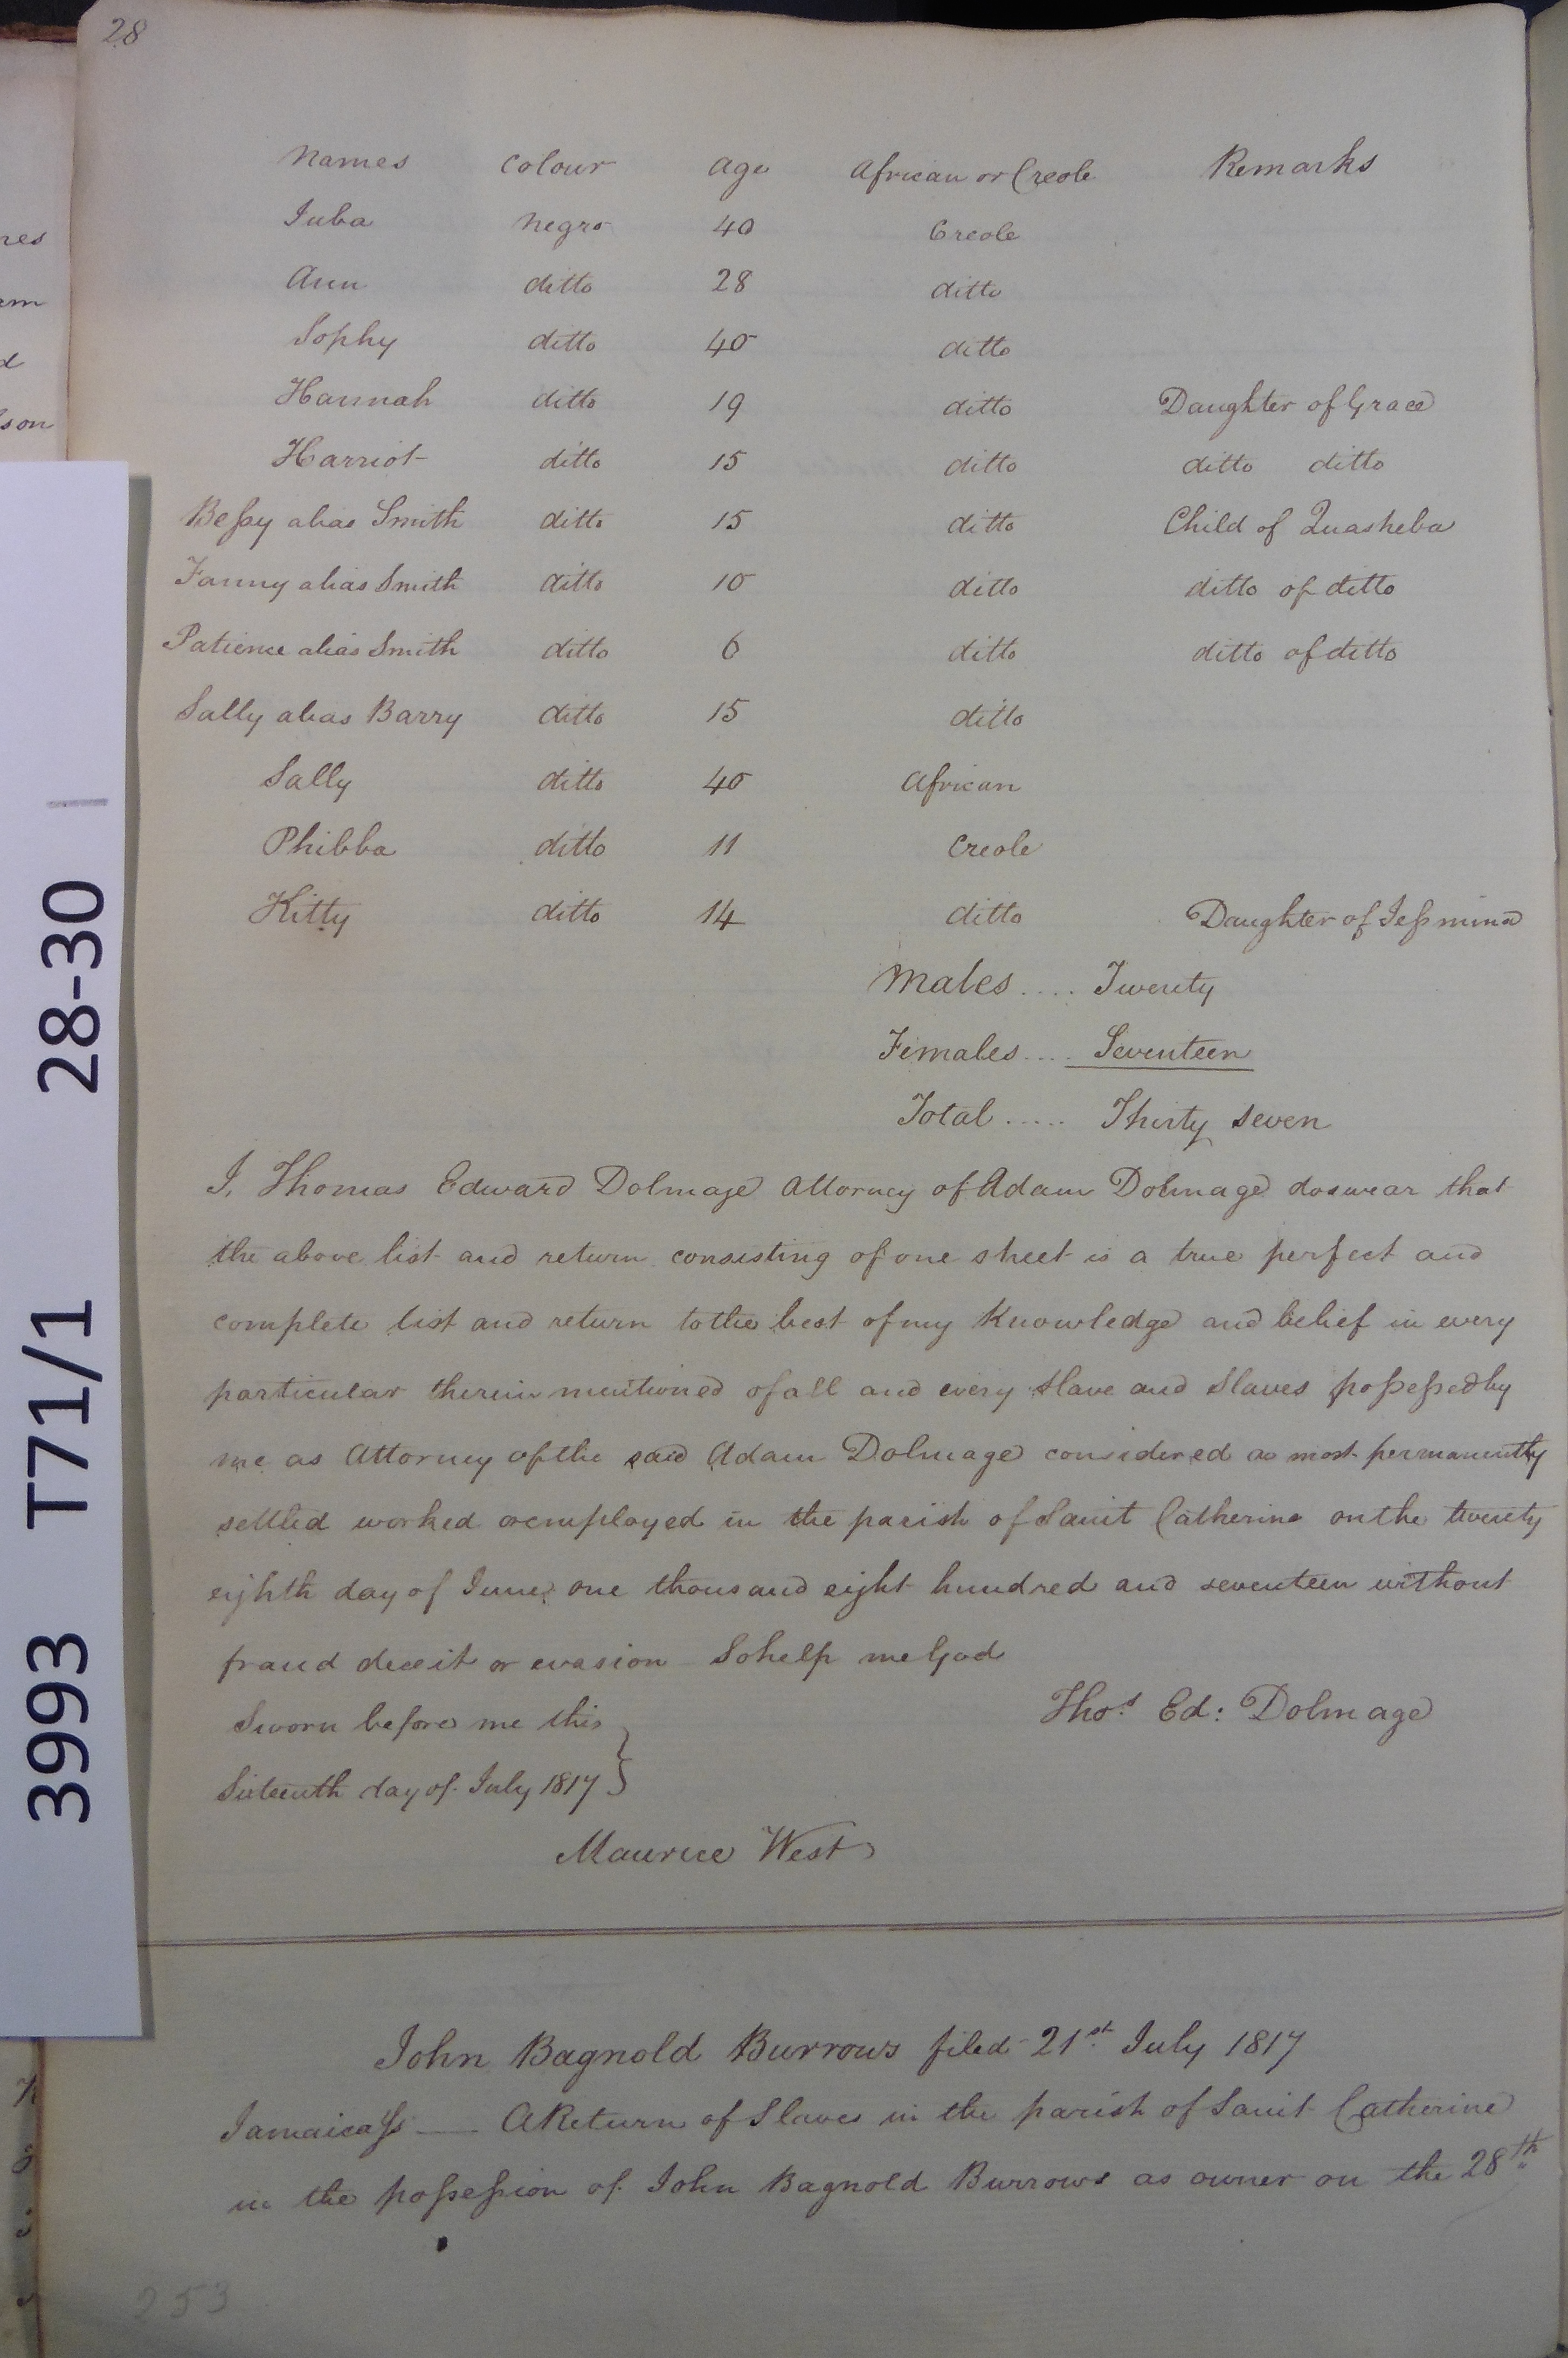 28
Names Colour Age African or Creole Remarks
Juba Negro 40 Creole
Ann ditto 28 ditto
Sophy ditto 40 ditto
Hannah ditto 19 ditto Daughter of Grace
Harriot ditto 15 ditto ditto ditto
Beſsy alias Smith ditto 15 ditto Child of Quasheba
Fanny alias Smith ditto 10 ditto ditto of ditto
Patience alias Smith ditto 6 ditto ditto of ditto
Sally alias Barry ditto 15 ditto
Sally ditto 40 African
Phibba ditto 11 Creole
Kitty ditto 14 ditto Daughter of Jeſsmina
Males .... Twenty
Females .... Seventeen
Total ..... Thirty seven
I, Thomas Edward Dolmage Attorney of Adam Dolmage do swear that
the above list and return consisting of one sheet is a true perfect and
complete list and return to the best of my Knowledge and belief in every
particular therein mentioned of all and every slave and Slaves poſseſsed by
me as Attorney of the said Adam Dolmage considered as most permanently
settled worked or employed in the parish of Saint Catherine on the twenty
eighth day of June one thousand eight hundred and seventeen without
fraud deceit or evasion So help me God
Thos. Ed: Dolmage
Sworn before me this
Sixteenth day of July 1817 }
Maurice West
John Bagnold Burrows filed 21st July 1817
Jamaica Ss — A Return of Slaves in the parish of Saint Catherine
in the poſseſsion of John Bagnold Burrows as owner on the 28th
253
3993 T71/1 28-30
nes
rm
d
son